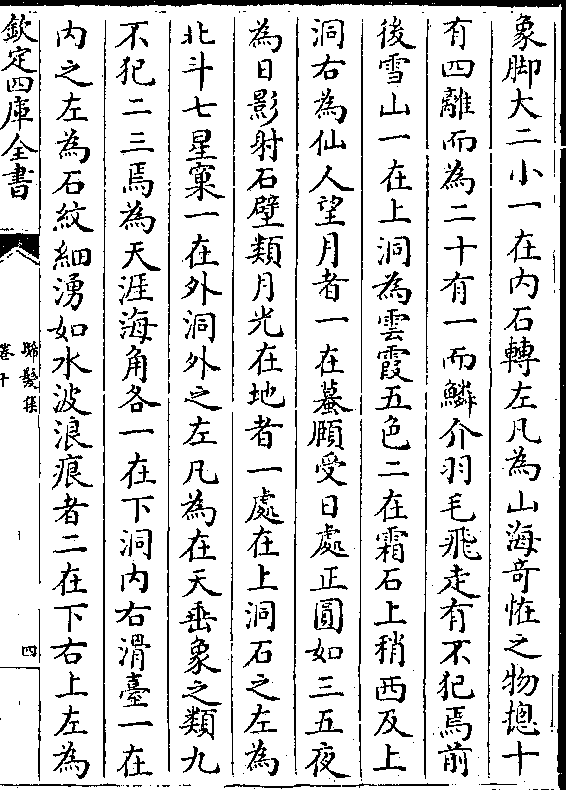 象脚大二小一在内石轉左凡為山海竒恠之物摠十
有四離而為二十有一而鱗介羽毛飛走有不犯焉前
後雪山一在上洞為雲霞五色二在霜石上稍西及上
洞右為仙人望月者一在蟇頥受日處正圓如三五夜
為日影射石壁類月光在地者一處在上洞石之左為
北斗七星窠一在外洞外之左凡為在天垂象之類九
不犯二三焉為天涯海角各一在下洞内右滑臺一在
内之左為石紋細湧如水波浪痕者二在下右上左為
欽定四庫全書
晞髮集
卷十
四